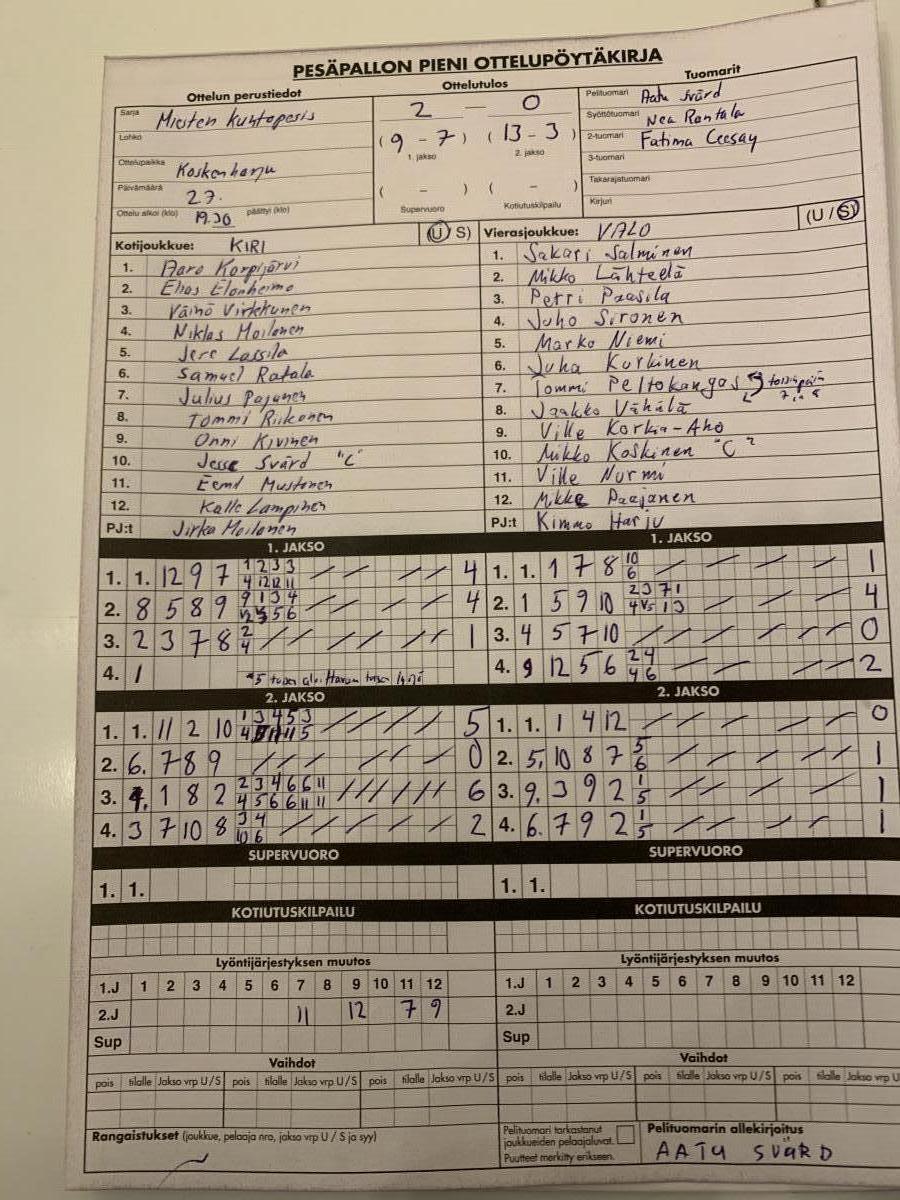 PESÄPALLON PIENI OTTELUPÖYTÄKIRJA
Ottelun perustiedot
Ottelutulos
Tuomarit
Sarja Miesten kuntopesis
Lohko
Ottelupaikka Koskenharju
Päivämäärä 27.
Ottelu alkoi (klo) 19.30 päättyi (klo)
2 — 0
(9 - 7) (13 - 3)
1. jakso 2. jakso
( - ) ( - )
Supervuoro Kotiutuskilpailu
Pelituomari Aatu Svärd
Syöttötuomari Nea Rantala
2-tuomari Fatima Ceesay
3-tuomari
Takarajatuomari
Kirjuri
Kotijoukkue: KIRI (U / S)
1. Aaro Korpijärvi
2. Elias Elonheimo
3. Väinö Virkkunen
4. Niklas Moilanen
5. Jere Lassila
6. Samuel Ratala
7. Julius Pajanen
8. Tommi Riikonen
9. Onni Kivinen
10. Jesse Svärd "C"
11. Eemil Mustonen
12. Kalle Lampinen
PJ:t Jirka Moilanen
Vierasjoukkue: VALO (U / S)
1. Sakari Salminen
2. Mikko Lähteelä
3. Petri Paasila
4. Juho Sironen
5. Marko Niemi
6. Juha Kurkinen
7. Tommi Peltokangas toisinpäin 7 ja 8
8. Jaakko Vähälä
9. Ville Korkia-Aho
10. Mikko Koskinen "C"
11. Ville Nurmi
12. Mikke Paajanen
PJ:t Kimmo Harju
1. JAKSO
1. 1. 12 9 7 1 2 3 3 4
4 12 12 11
2. 8 5 8 9 9 1 3 4 4
3 5 6
3. 2 3 7 8 2 1
4
4. 1
2. JAKSO
1. 1. 11 2 10 1 3 4 5 3 5
4 11 11 5
2. 6. 7 8 9 0
3. 4. 1 8 2 2 3 4 6 6 11 6
4 5 6 6 11 11
4. 3 7 10 8 3 4 2
10 6
1. JAKSO
1. 1. 1 7 8 10 1
6
2. 1 5 9 10 2 3 7 1 4
4 1 3
3. 4 5 7 10 0
4. 9 12 5 6 2 4 2
4 6
2. JAKSO
1. 1. 1 4 12 0
2. 5. 10 8 7 5 1
6
3. 9. 3 9 2 1 1
5
4. 6. 7 9 2 1 1
5
SUPERVUORO
1. 1.
SUPERVUORO
1. 1.
KOTIUTUSKILPAILU
KOTIUTUSKILPAILU
Lyöntijärjestyksen muutos
1.J 1 2 3 4 5 6 7 8 9 10 11 12
2.J 11 12 7 9
Sup
Lyöntijärjestyksen muutos
1.J 1 2 3 4 5 6 7 8 9 10 11 12
2.J
Sup
Vaihdot
pois tilalle Jakso vrp U / S pois tilalle Jakso vrp U / S pois tilalle Jakso vrp U / S
Vaihdot
pois tilalle Jakso vrp U / S pois tilalle Jakso vrp U / S pois tilalle Jakso vrp U
Rangaistukset (joukkue, pelaaja nro, jakso vrp U / S ja syy)
Pelituomari tarkastanut
joukkueiden pelaajaluvat.
Puutteet merkitty erikseen.
Pelituomarin allekirjoitus
AATU SVÄRD